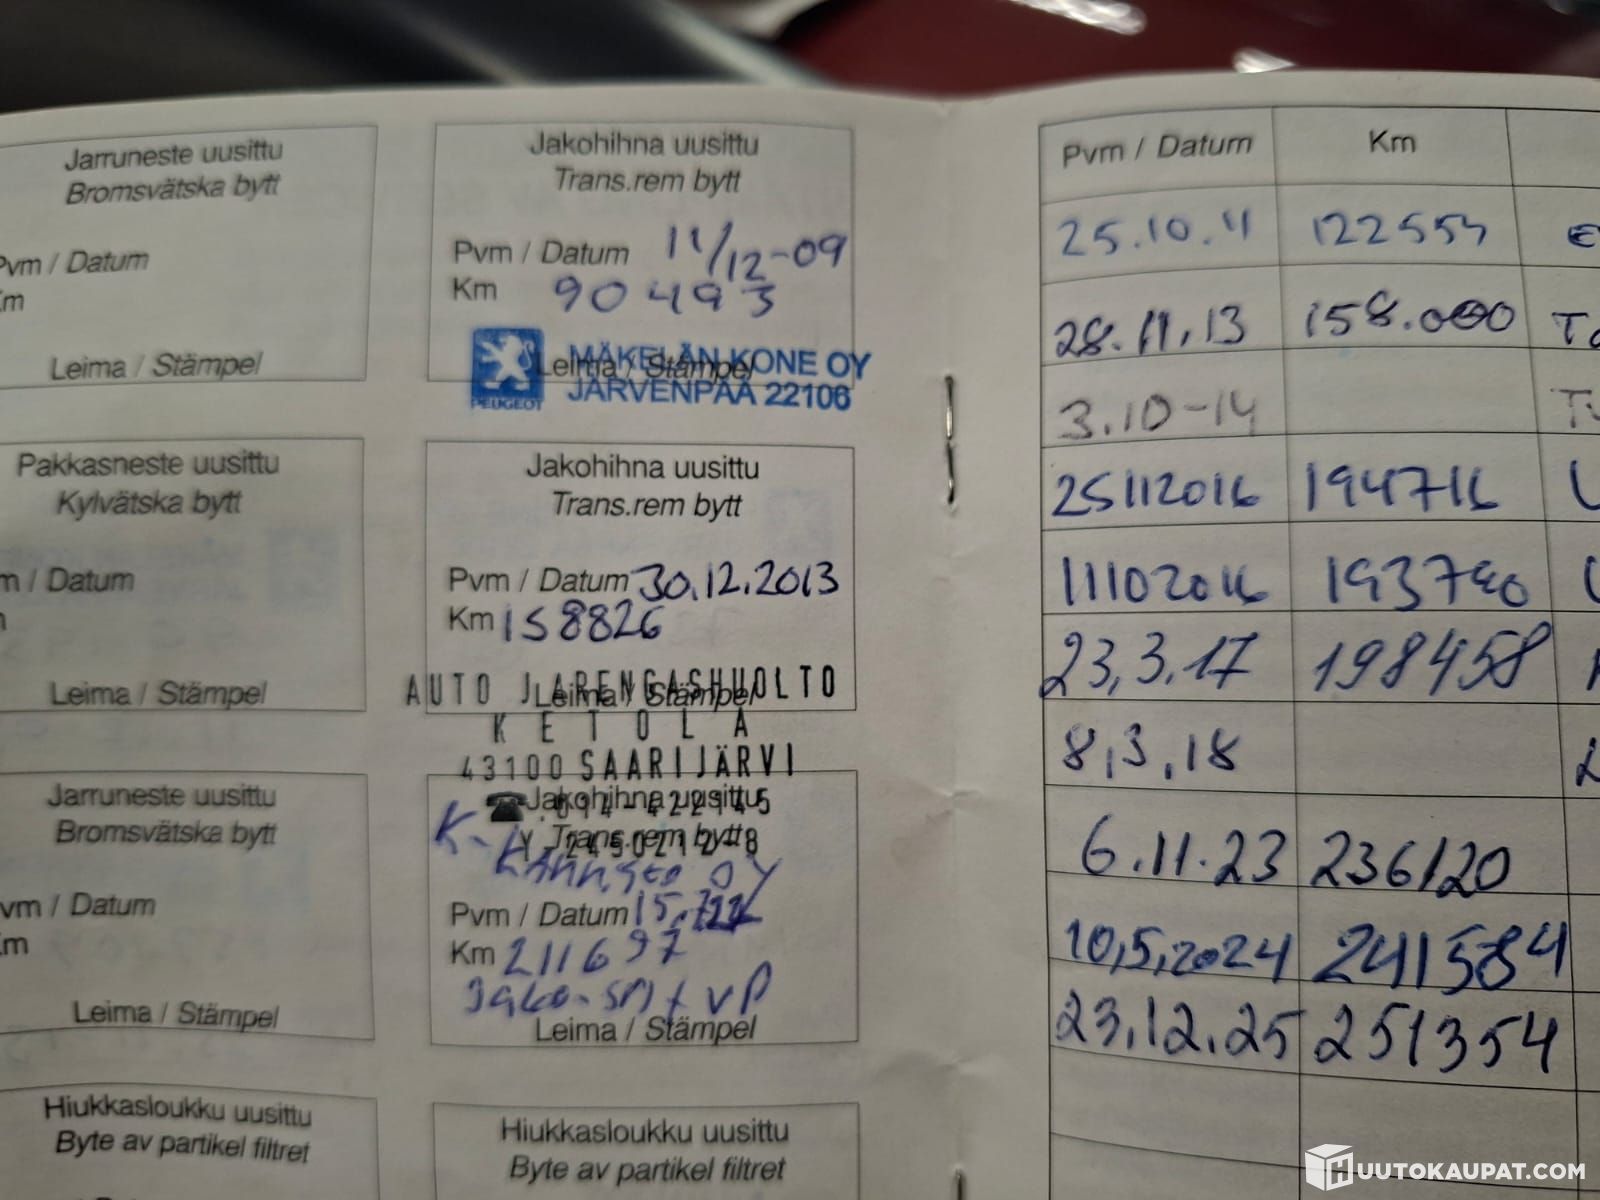 Jarruneste uusittu
Bromsvätska bytt
Pvm / Datum
Km
Leima / Stämpel
Pakkasneste uusittu
Kylvätska bytt
m / Datum
Leima / Stämpel
Jarruneste uusittu
Bromsvätska bytt
vm / Datum
Km
Leima / Stämpel
Hiukkasloukku uusittu
Byte av partikel filtret
Jakohihna uusittu
Trans.rem bytt
Pvm / Datum 11/12-09
Km 90493
Leima / Stämpel
PEUGEOT
MÄKELÄN KONE OY
JÄRVENPÄÄ 22106
Jakohihna uusittu
Trans.rem bytt
Pvm / Datum 30.12.2013
Km 158826
Leima / Stämpel
AUTO JA RENGASHUOLTO
KETOLA
43100 SAARIJÄRVI
Jakohihna uusittu
Trans.rem bytt
Pvm / Datum
Km 211697
Leima / Stämpel
Hiukkasloukku uusittu
Byte av partikel filtret
Pvm / Datum Km
25.10.11
28.11.13 158.000
3.10-14
25112016 194716
11102016
23,3.17 198458
8,3,18
6.11.23 236120
10,5,2024 241584
23.12.25 251354
HUUTOKAUPAT.COM